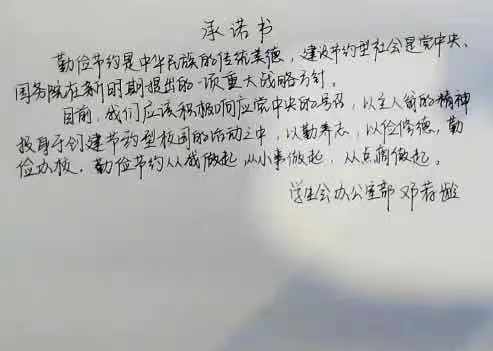 承诺书
勤俭节约是中华民族的传统美德，建设节约型社会是党中央、
国务院在新时期提出的一项重大战略方针。
目前，我们应该积极响应党中央的号召，以主人翁的精神
投身于创建节约型校园的活动之中，以勤养志，以俭修德，勤
俭办校。勤俭节约从我做起，从小事做起，从点滴做起。
学生会办公室部 邓若